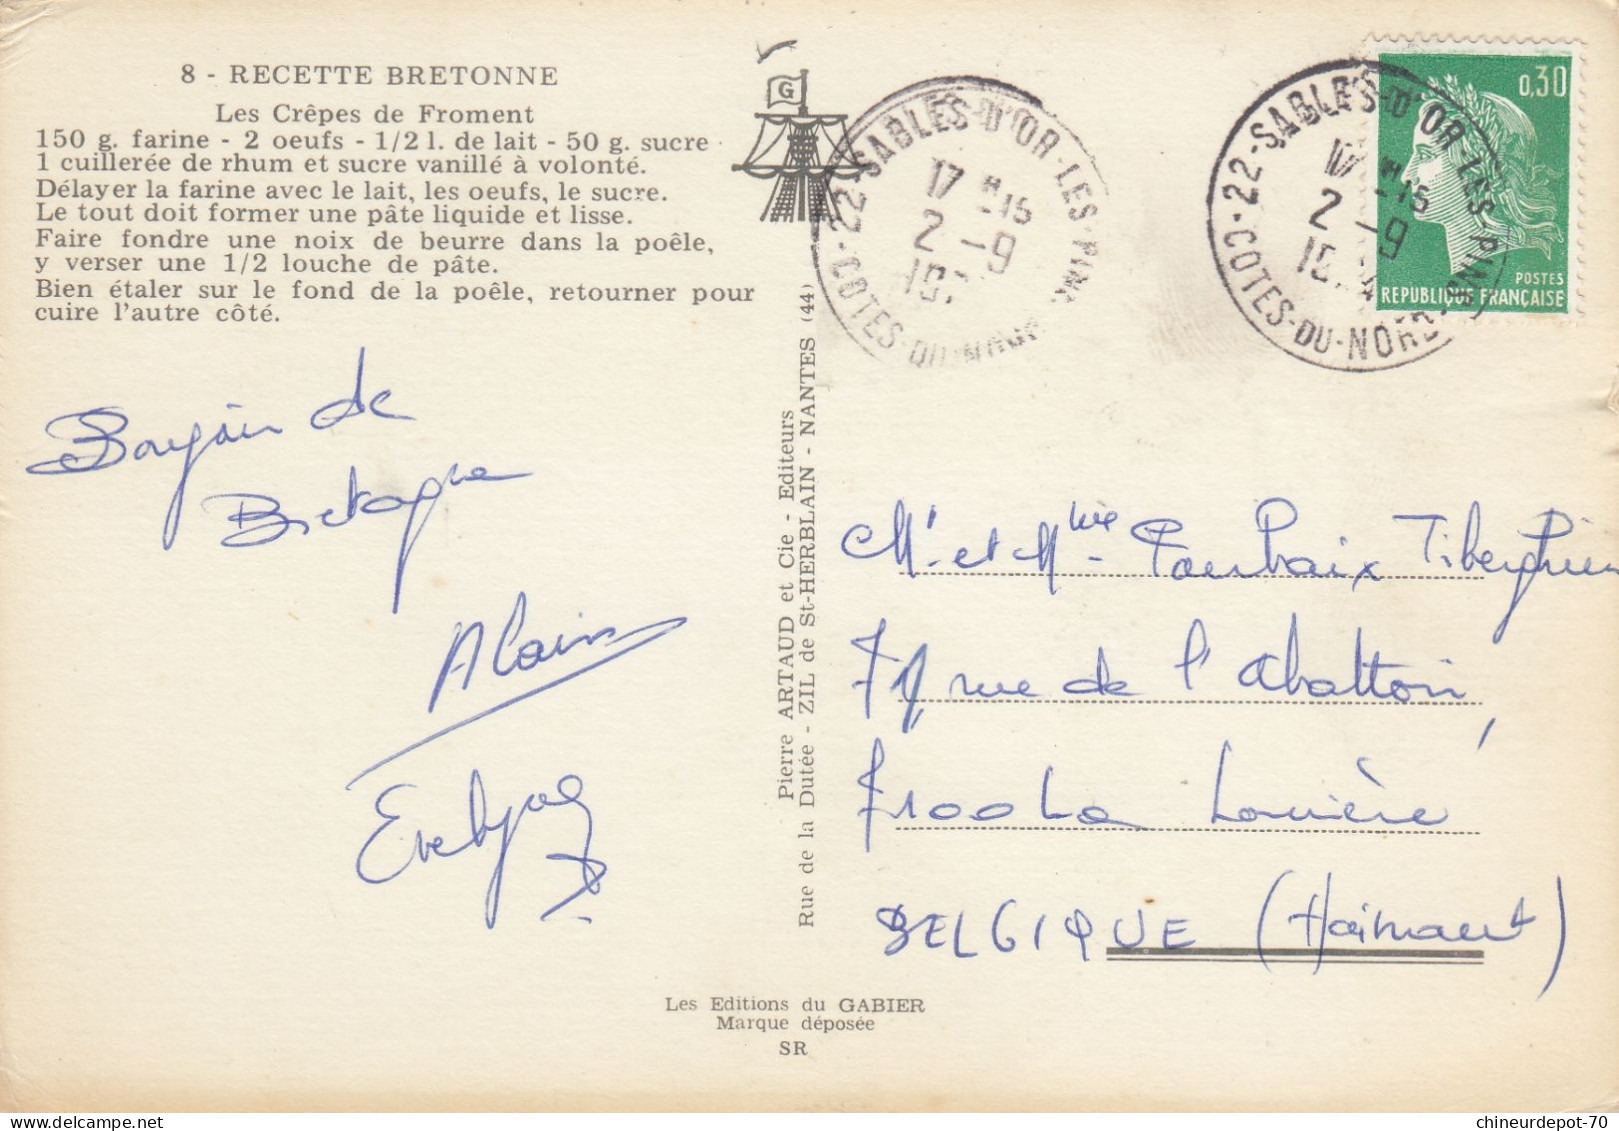 8 - RECETTE BRETONNE
Les Crêpes de Froment
150 g. farine - 2 oeufs - 1/2 l. de lait - 50 g. sucre
1 cuillerée de rhum et sucre vanillé à volonté.
Délayer la farine avec le lait, les oeufs, le sucre.
Le tout doit former une pâte liquide et lisse.
Faire fondre une noix de beurre dans la poêle,
y verser une 1/2 louche de pâte.
Bien étaler sur le fond de la poêle, retourner pour
cuire l'autre côté.
G
22-SABLES-D'OR-LES-PIN
17 H-15
2 -9
COTES-DU-NORD
22-SABLES-D'OR-LES-PINS
17 H-15
2 -9
COTES-DU-NORD
0,30
POSTES
REPUBLIQUE FRANÇAISE
Bonjour de
Bretagne
Alain
Pierre ARTAUD et Cie - Editeurs
Rue de la Dutée - ZIL de St-HERBLAIN - NANTES (44)
Mr et Mme Tiberghien
rue de l'abattoir,
7100 La Louvière
BELGIQUE (Hainaut)
Les Editions du GABIER
Marque déposée
SR
chineurdepot-70